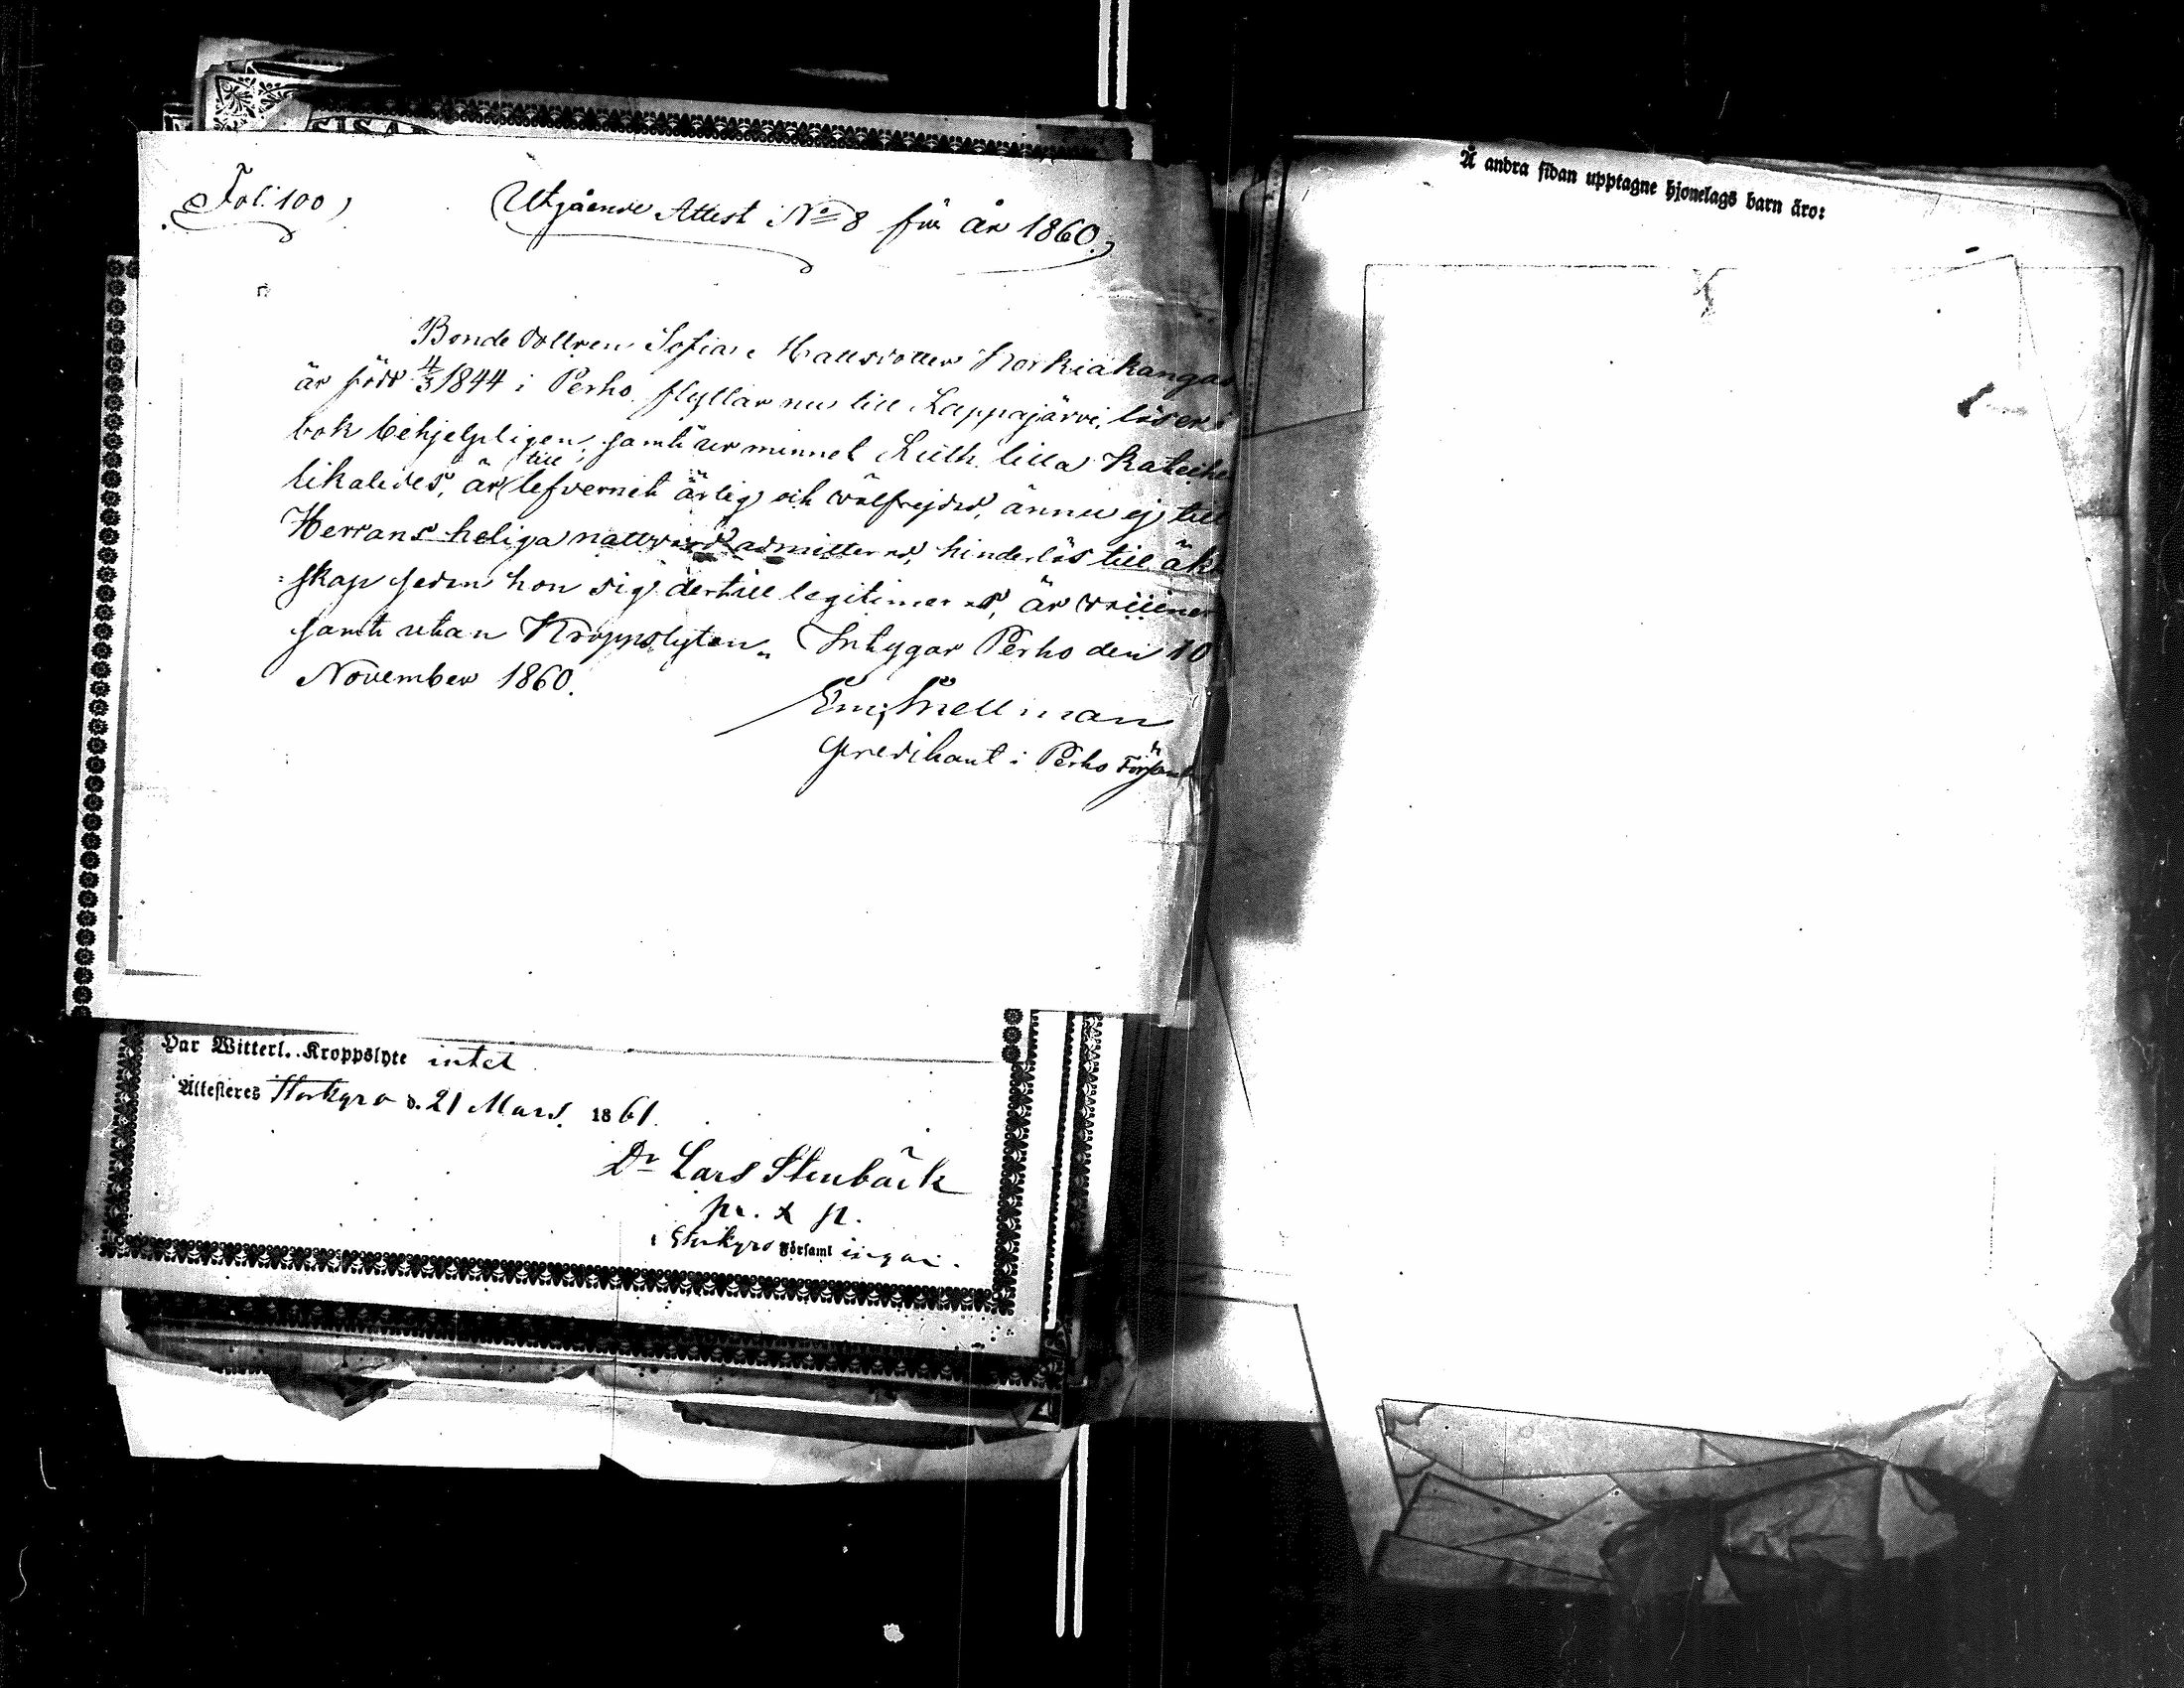 Fol: 100,
Utgående Attest No 8 för år 1860.
Bonde dottren Sofia Mattsdotter Korkiakangas
är född 4/3 1844 i Perho, flyttar nu till Lappajärvi, läser i
bok behjelpligen, samt ur minnet Luth. lilla Kateche
likaledes, är till lefvernet ärlig och wälfrejdad, ännu ej till
Herrans heliga nattvard admitterad, hinderlös till äkt
skap sedan hon sig dertill legitimerat, är
samt utan Kroppslyten. Intygar Perho den 10
November 1860.
Em. Snellman
predikant i Perho Församl
Har Witterl. Kroppslyte intet
Attesteres Storkyro d. 21 Mars 1861.
Dr Lars Stenbäck
i Storkyro Församl ingar.
Å andra sidan upptagne hjonelags barn äro: